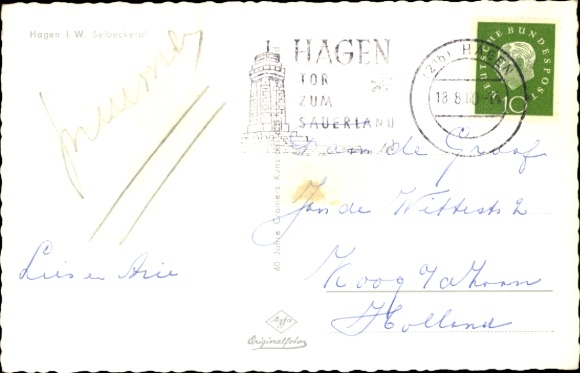 Hagen i.W. Selbecketal
HAGEN
TOR
ZUM
SAUERLAND
(21b) HAGEN
18.8.60
DEUTSCHE BUNDESPOST
10
de Graaf
Jan de Wittestr 2
Koog a/d Zaan
Holland
Lies en Arie
60 Jahre Cramers Kunst
Agfa
Originalfoto